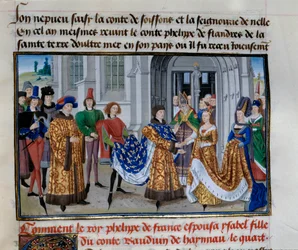 son nepueu saisy la conte de soissons et la seignourie de nelle
En cel an meismes reuint le conte phelippe de flandres de la
sainte terre doultre mer en son pays ou il fu receu ioieusement
Comment le roy phelippe de france espousa ysabel fille
du conte Bauduin de haynnau le quart